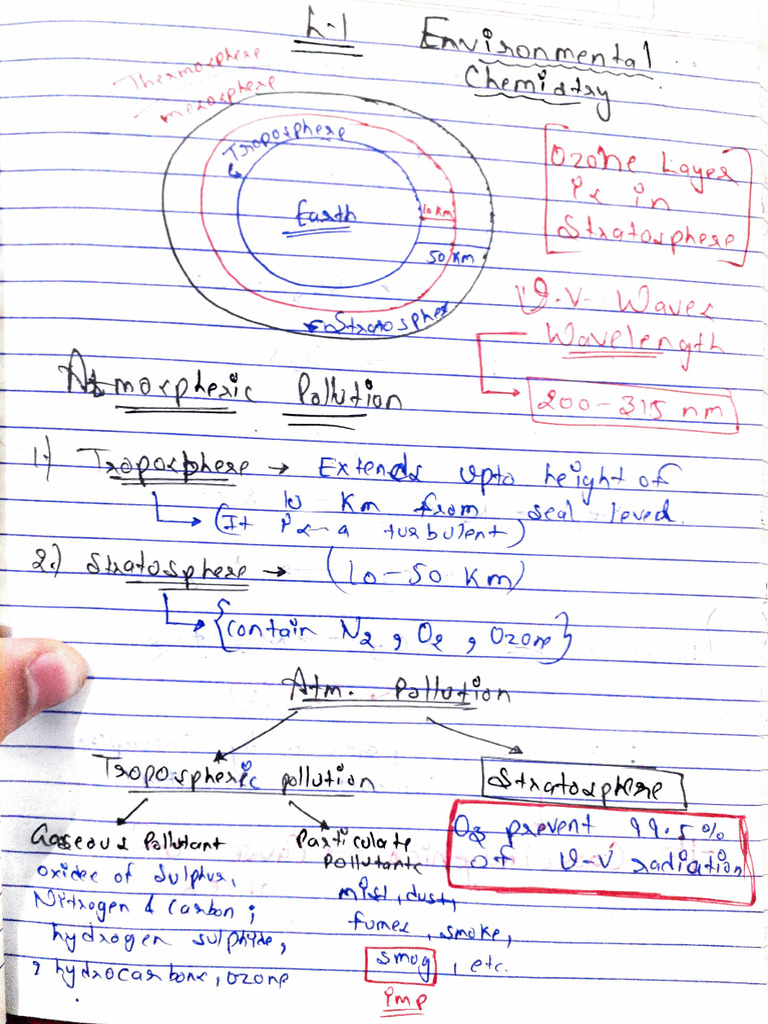 L-1 Environmental
Chemistry
Thermosphere
mesosphere
Troposphere
Earth
10 Km
50 Km
Stratospher
Ozone Layer
is in
Stratosphere
U.V. Waves
Wavelength
200-315 nm
Atmospheric Pollution
1.) Troposphere → Extends upto height of
10 Km from seal level.
(It is a turbulent)
2.) Stratosphere → (10-50 Km)
{contain N2, O2, Ozone}
Atm. Pollution
Tropospheric pollution
Stratosphere
Gaseous Pollutant
oxides of Sulphur,
Nitrogen & carbon;
hydrogen sulphide,
, hydrocarbons, ozone
Particulate
Pollutants
mist, dust,
fumes, smoke,
smog, etc.
imp
O3 prevent 99.5%
of U-V radiation